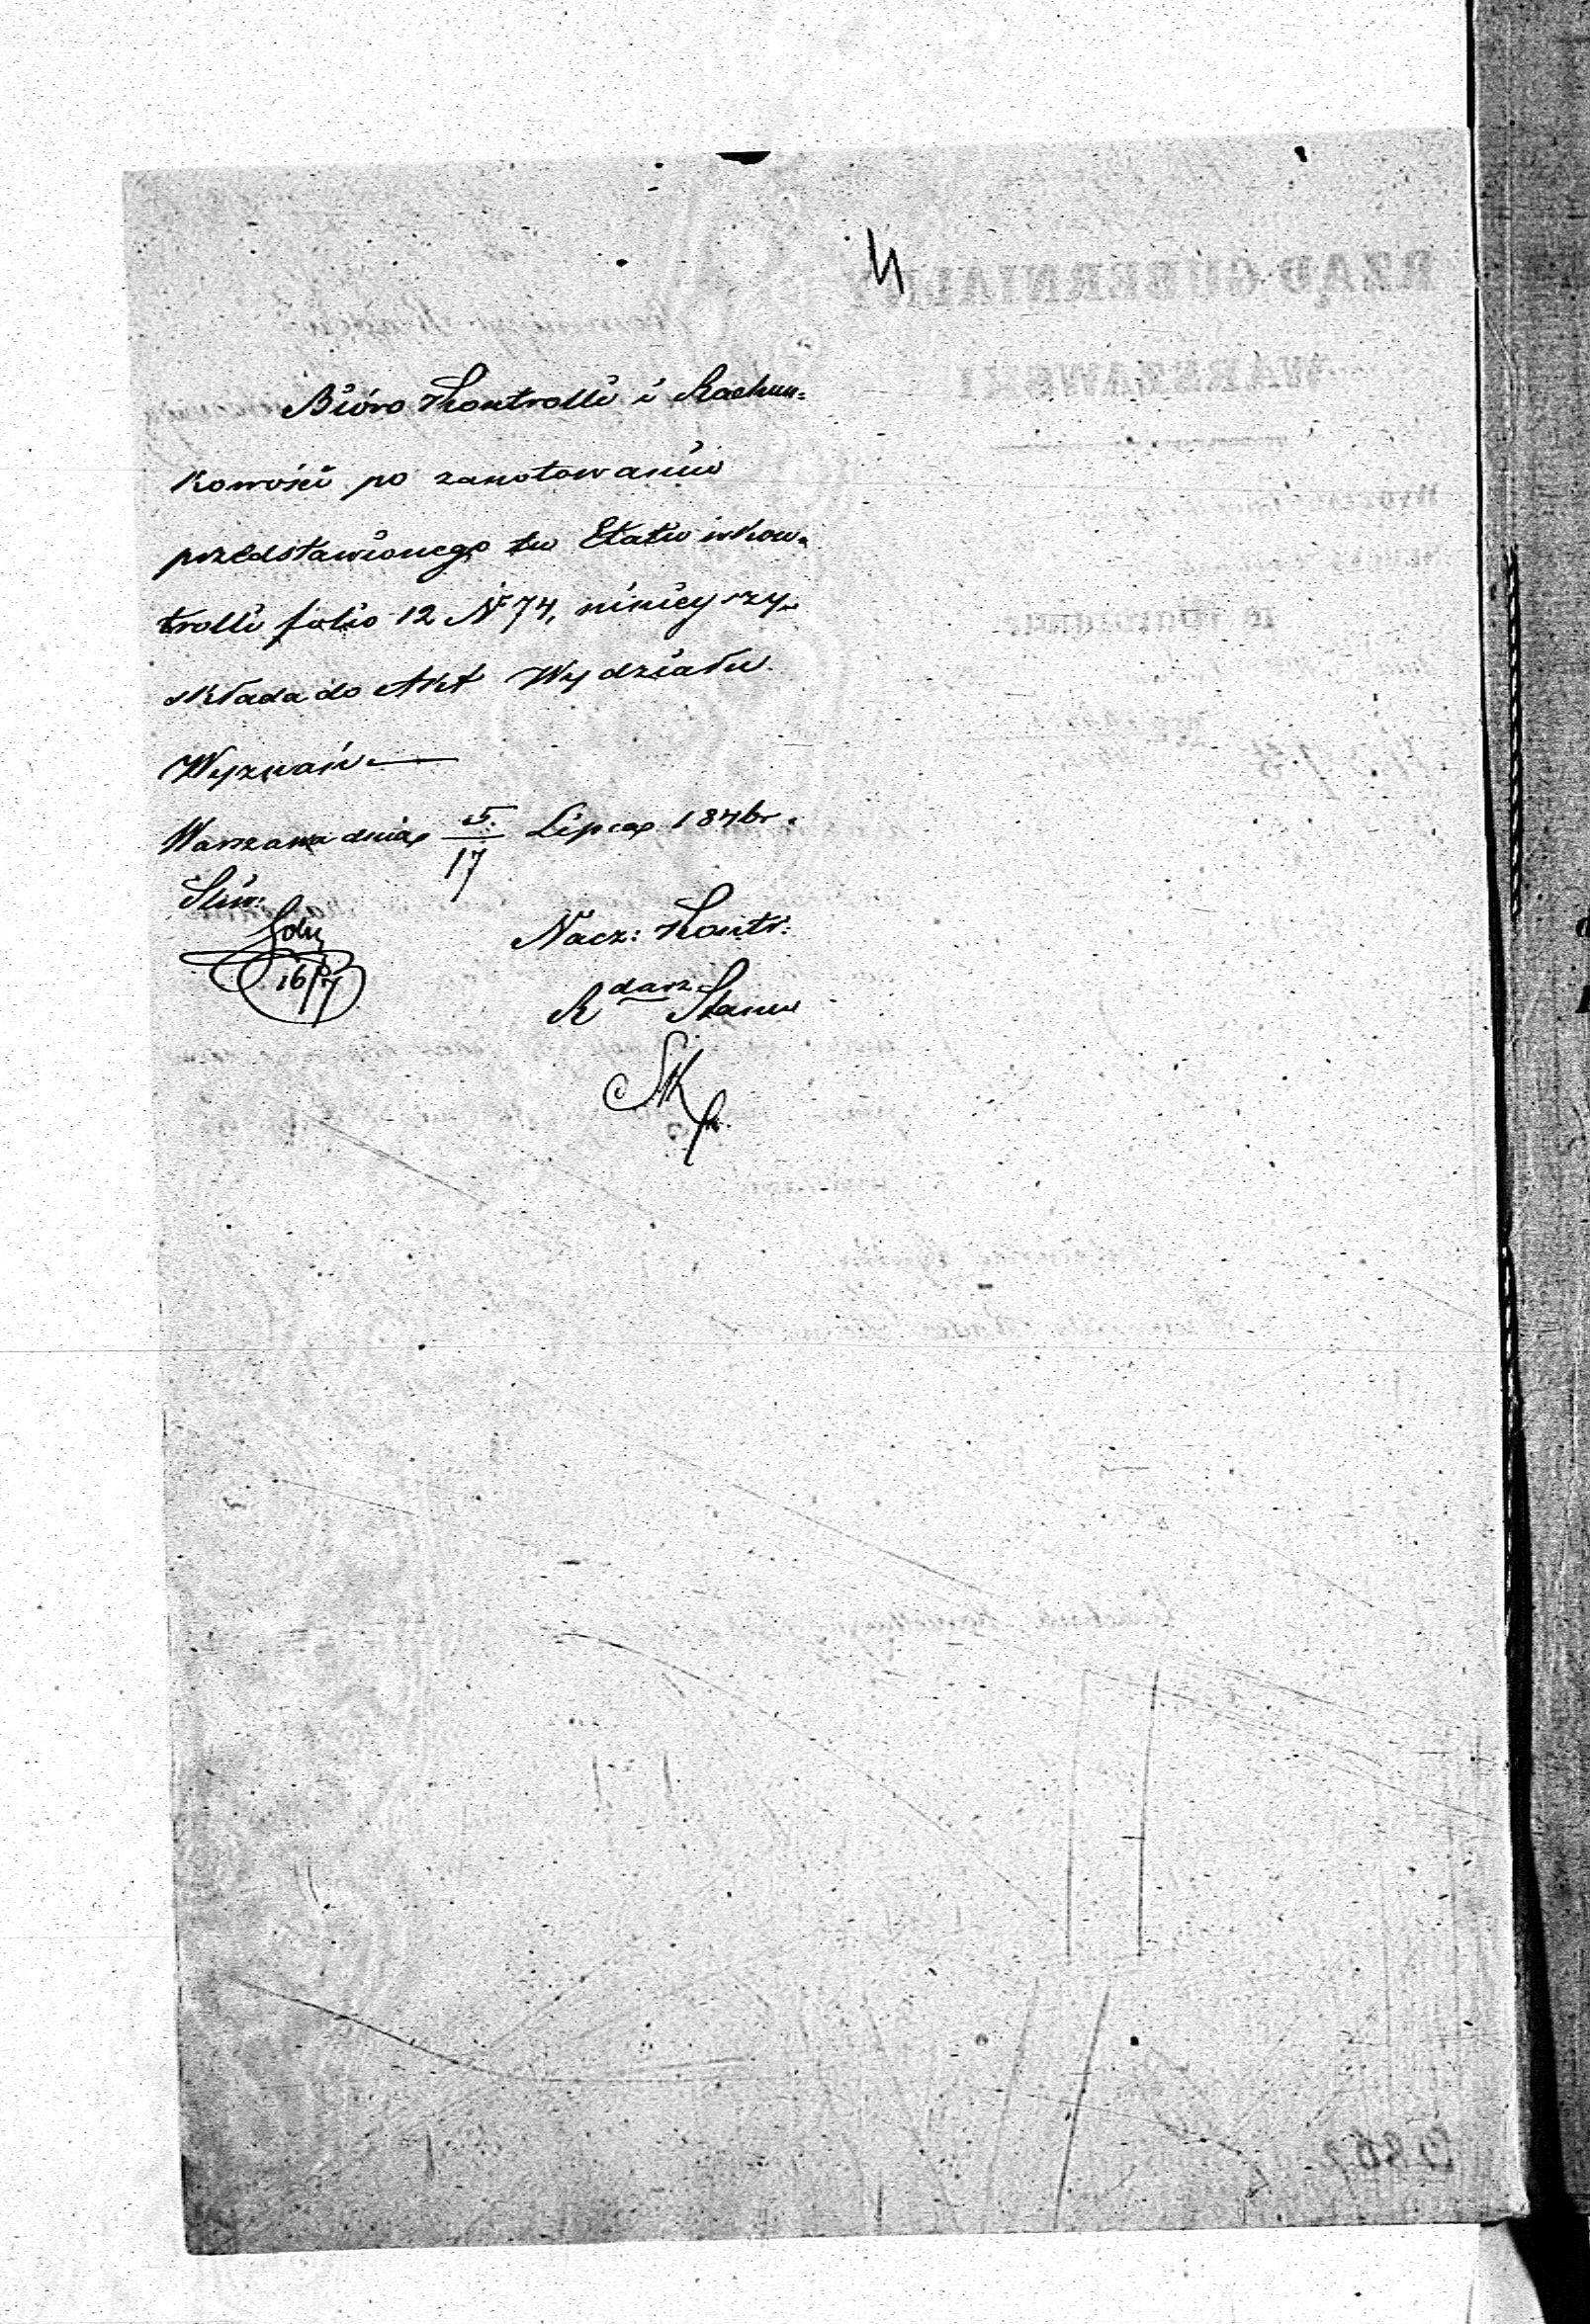 Biόro Kontrolli i Rachun=
kowości po zanotowaniu
przedstawionego tu Etatu w kon=
trolli folio 12 N 74, ninieyszy
składa do Akt Wydziału
Wyznań
Warszawa dnia 5/17 Lipca 1846 r.
16/7
Nacz: Kontr:
R darz Stanu
SK